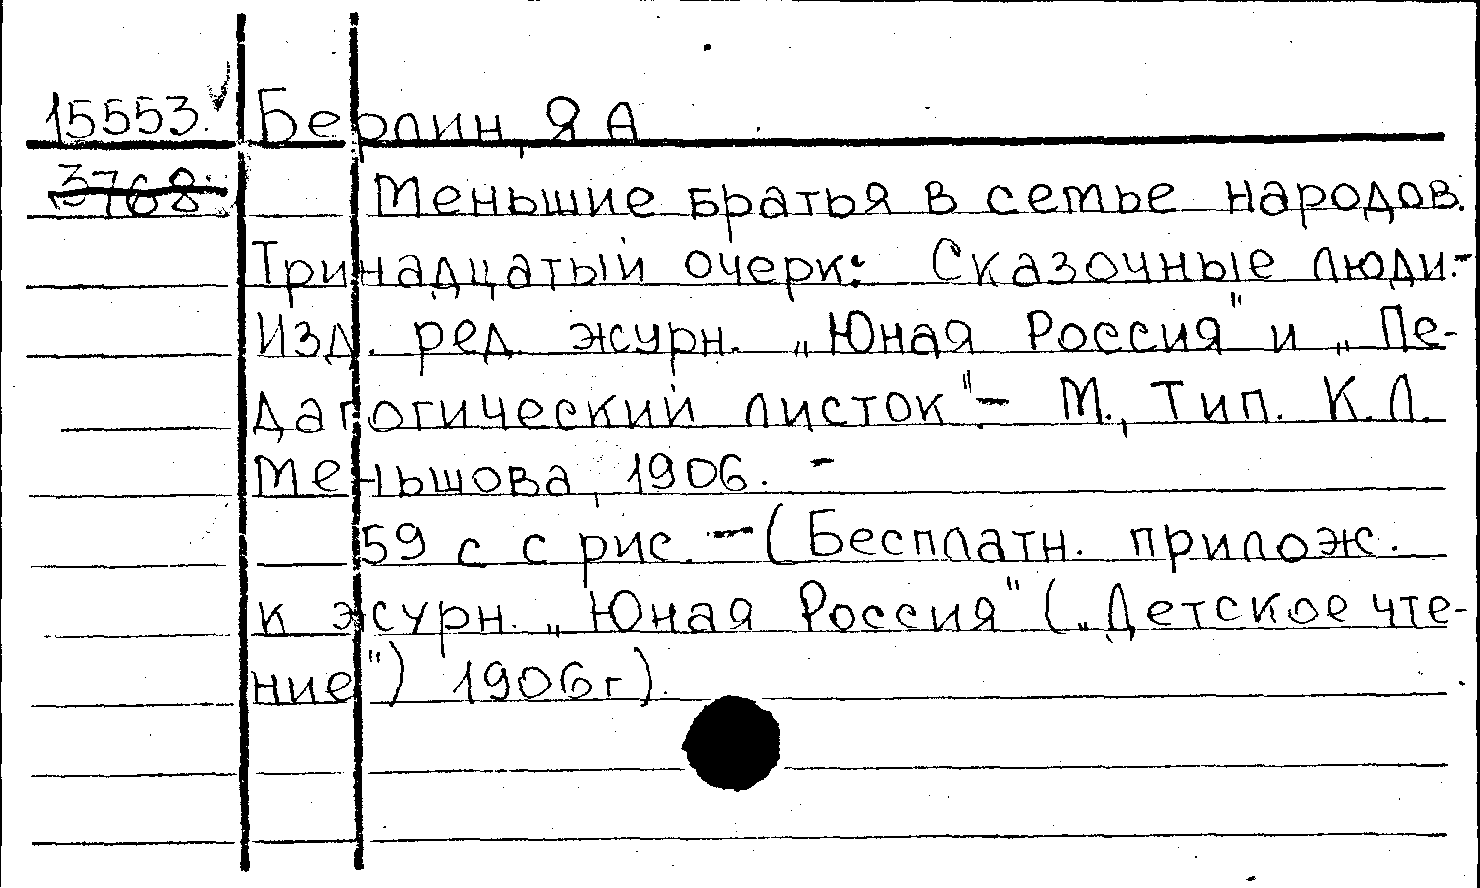 15553. Берлин, Я А
3768. Меньшие братья в семье народов.
Тринадцатый очерк: Сказочные люди.-
Изд. ред. журн. „Юная Россия" и „Пе-
дагогический листок" - М., Тип. К.Л.
Меньшова, 1906. -
59 с с рис. - (Бесплатн. прилож.
к журн. „Юная Россия" („Детское чте-
ние") 1906г).